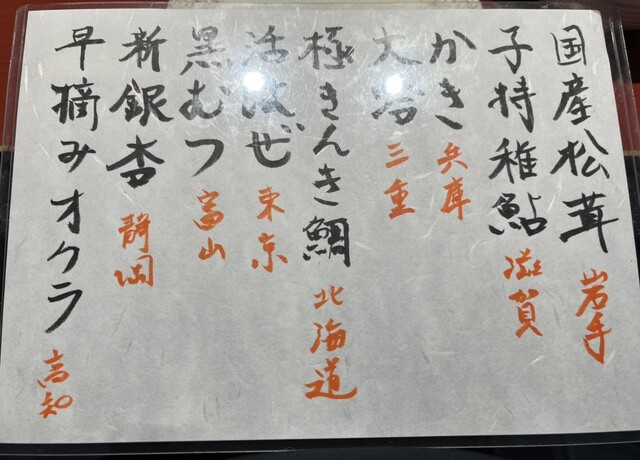 国産松茸 岩手
子持稚鮎 滋賀
かき 兵庫
三重
極きんき鯛 北海道
活はぜ 東京
黒むつ 富山
新銀杏 静岡
早摘みオクラ 高知